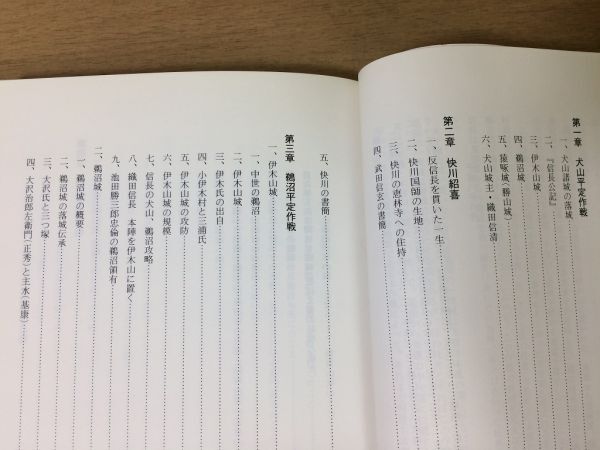 第一章 犬山平定作戦
一、犬山諸城の落城
二、『信長公記』
三、伊木山城
四、鵜沼城
五、猿啄城(勝山城)
六、犬山城主・織田信清
第二章 快川紹喜
一、反信長を貫いた一生
二、快川国師の生地
三、快川の恵林寺への住持
四、武田信玄の書簡
五、快川の書簡
第三章 鵜沼平定作戦
一、伊木山城
一、中世の鵜沼
二、伊木山城
三、伊木氏の出自
四、小伊木村と三浦氏
五、伊木山城の攻防
六、伊木山城の規模
七、信長の犬山、鵜沼攻略
八、織田信長、本陣を伊木山に置く
九、池田勝三郎忠倫の鵜沼領有
二、鵜沼城
一、鵜沼城の概要
二、鵜沼城の落城伝承
三、大沢氏と三つ塚
四、大沢治郎左衛門(正秀)と主水(基康)